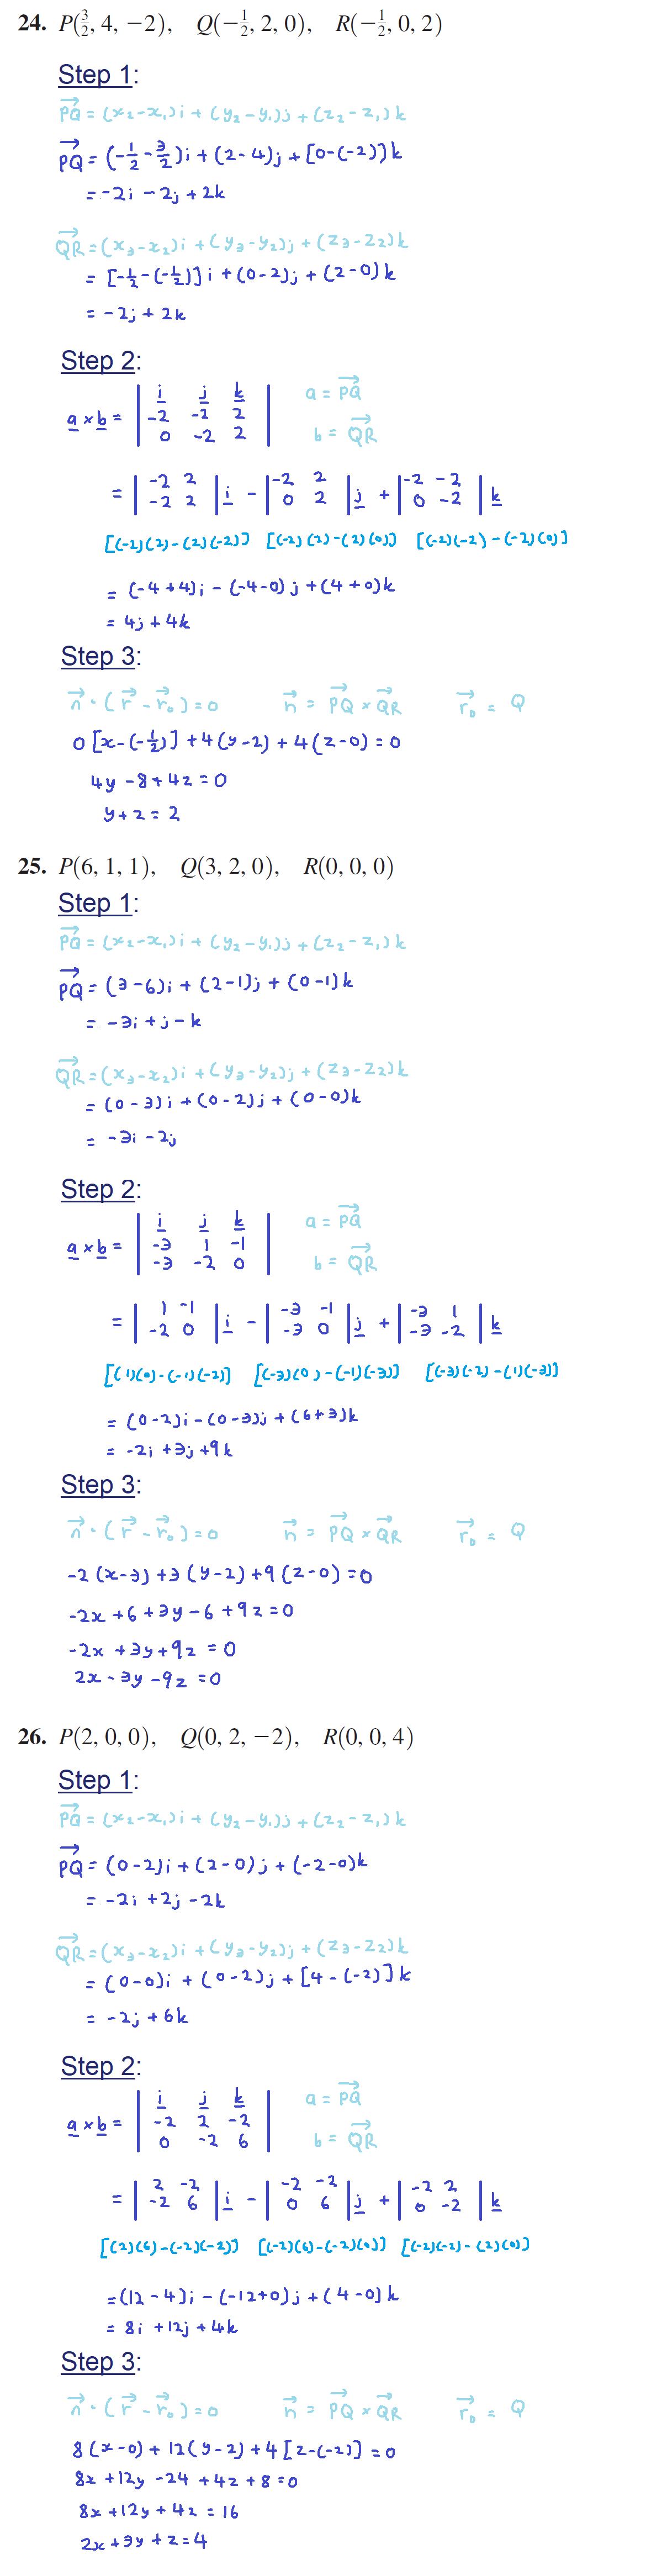 24. P(3/2, 4, −2), Q(−1/2, 2, 0), R(−1/2, 0, 2)
Step 1:
PQ⃗ = (x₂-x₁)i + (y₂-y₁)j + (z₂-z₁)k
PQ⃗ = (-1/2 - 3/2)i + (2-4)j + [0-(-2)]k
= -2i - 2j + 2k
QR⃗ = (x₃-x₂)i + (y₃-y₂)j + (z₃-z₂)k
= [-1/2-(-1/2)]i + (0-2)j + (2-0)k
= -2j + 2k
Step 2:
a × b = | i j k | a = PQ⃗
| -2 -2 2 |
| 0 -2 2 | b = QR⃗
= | -2 2 | i - | -2 2 | j + | -2 -2 | k
| -2 2 | | 0 2 | | 0 -2 |
[(-2)(2)-(2)(-2)] [(-2)(2)-(2)(0)] [(-2)(-2)-(-2)(0)]
= (-4+4)i - (-4-0)j + (4+0)k
= 4j + 4k
Step 3:
n⃗ · (r⃗ - r⃗₀) = 0 n⃗ = PQ⃗ × QR⃗ r⃗₀ = Q
0[x-(-1/2)] + 4(y-2) + 4(z-0) = 0
4y - 8 + 4z = 0
y + z = 2
25. P(6, 1, 1), Q(3, 2, 0), R(0, 0, 0)
Step 1:
PQ⃗ = (x₂-x₁)i + (y₂-y₁)j + (z₂-z₁)k
PQ⃗ = (3-6)i + (2-1)j + (0-1)k
= -3i + j - k
QR⃗ = (x₃-x₂)i + (y₃-y₂)j + (z₃-z₂)k
= (0-3)i + (0-2)j + (0-0)k
= -3i - 2j
Step 2:
a × b = | i j k | a = PQ⃗
| -3 1 -1 |
| -3 -2 0 | b = QR⃗
= | 1 -1 | i - | -3 -1 | j + | -3 1 | k
| -2 0 | | -3 0 | | -3 -2 |
[(1)(0)-(-1)(-2)] [(-3)(0)-(-1)(-3)] [(-3)(-2)-(1)(-3)]
= (0-2)i - (0-3)j + (6+3)k
= -2i + 3j + 9k
Step 3:
n⃗ · (r⃗ - r⃗₀) = 0 n⃗ = PQ⃗ × QR⃗ r⃗₀ = Q
-2(x-3) + 3(y-2) + 9(z-0) = 0
-2x + 6 + 3y - 6 + 9z = 0
-2x + 3y + 9z = 0
2x - 3y - 9z = 0
26. P(2, 0, 0), Q(0, 2, −2), R(0, 0, 4)
Step 1:
PQ⃗ = (x₂-x₁)i + (y₂-y₁)j + (z₂-z₁)k
PQ⃗ = (0-2)i + (2-0)j + (-2-0)k
= -2i + 2j - 2k
QR⃗ = (x₃-x₂)i + (y₃-y₂)j + (z₃-z₂)k
= (0-0)i + (0-2)j + [4-(-2)]k
= -2j + 6k
Step 2:
a × b = | i j k | a = PQ⃗
| -2 2 -2 |
| 0 -2 6 | b = QR⃗
= | 2 -2 | i - | -2 -2 | j + | -2 2 | k
| -2 6 | | 0 6 | | 0 -2 |
[(2)(6)-(-2)(-2)] [(-2)(6)-(-2)(0)] [(-2)(-2)-(2)(0)]
= (12-4)i - (-12+0)j + (4-0)k
= 8i + 12j + 4k
Step 3:
n⃗ · (r⃗ - r⃗₀) = 0 n⃗ = PQ⃗ × QR⃗ r⃗₀ = Q
8(x-0) + 12(y-2) + 4[z-(-2)] = 0
8x + 12y - 24 + 4z + 8 = 0
8x + 12y + 4z = 16
2x + 3y + z = 4